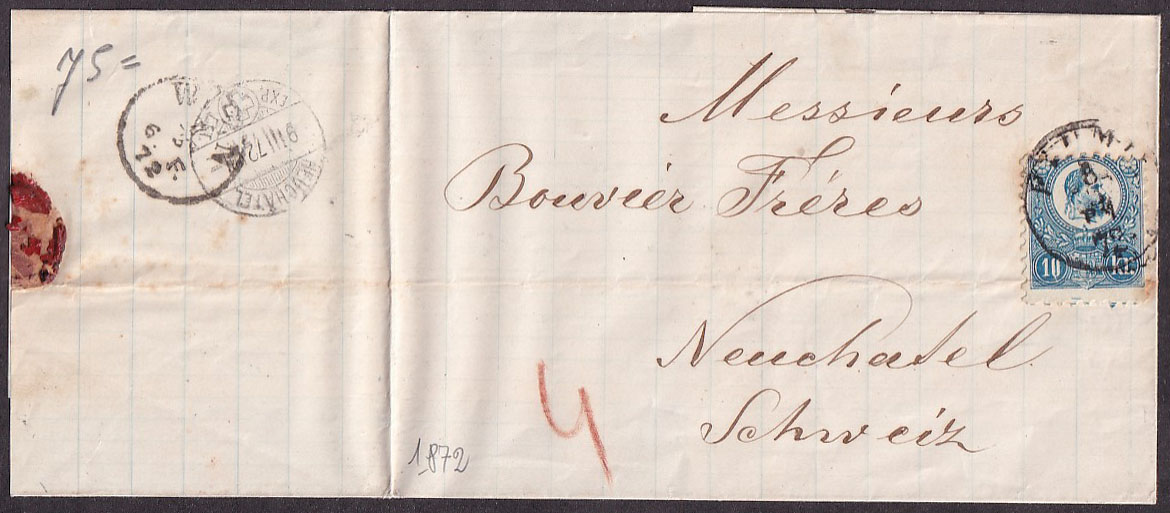 75=
NEUCHÂTEL
9 III 72
EXP
6
72
Messieurs
Bouvier Fréres
10 kr.
Neuchatel
Schweiz
4
1872